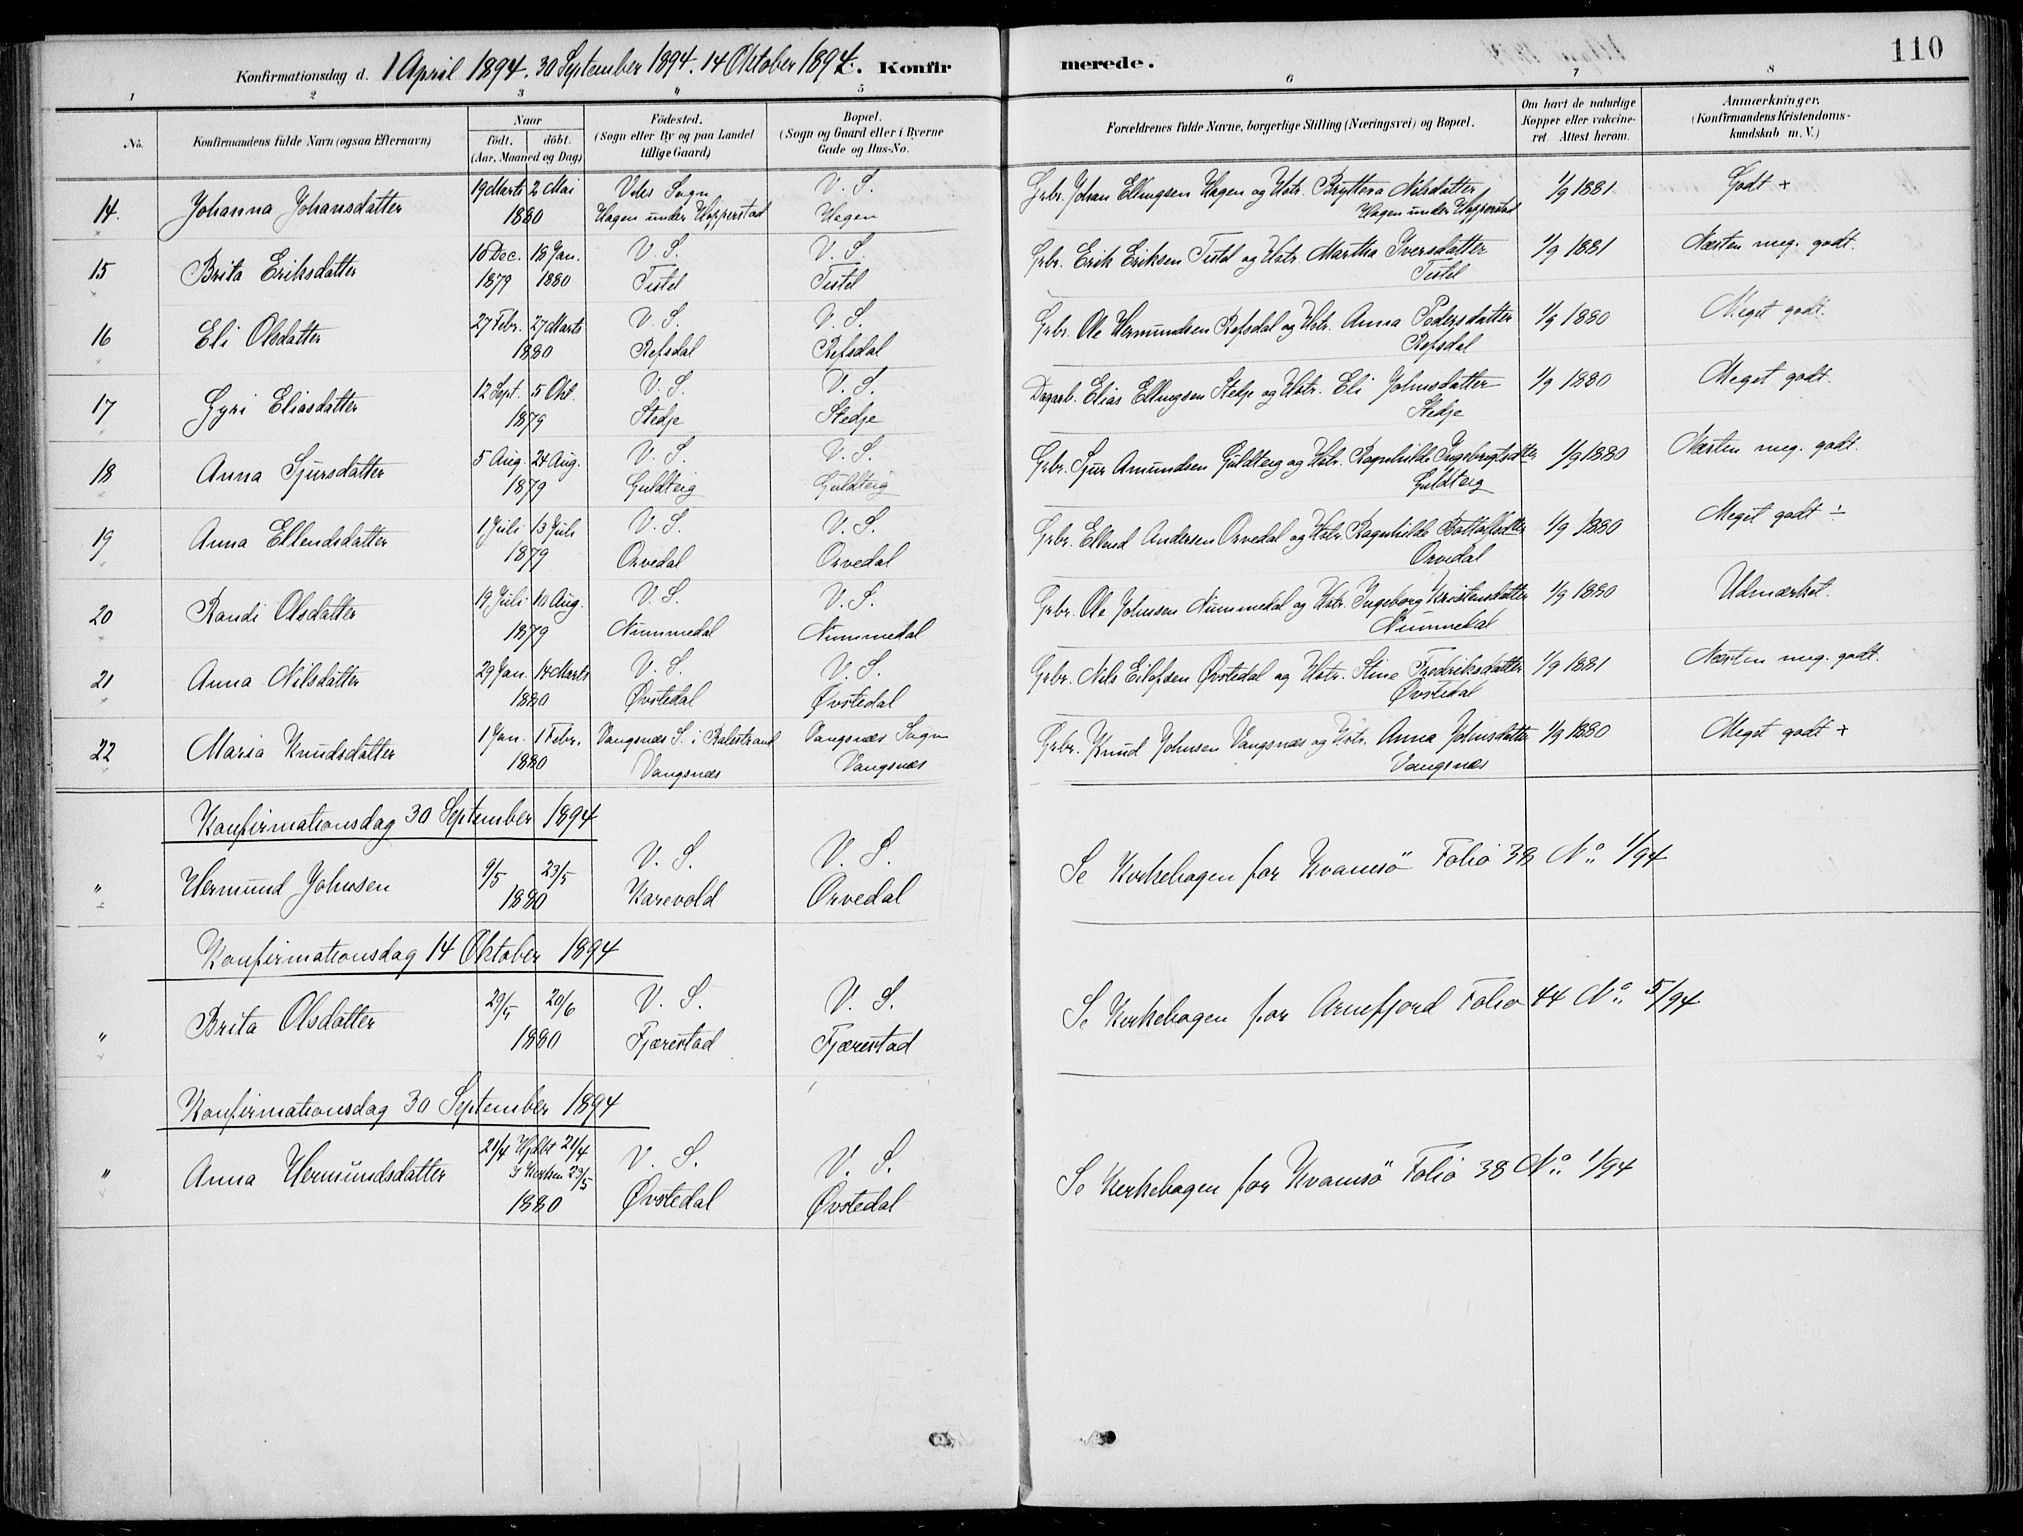 110
Konfirmationsdag d. 1 April 1894. 30 September 1894. 14 Oktober 1894. C. Konfirmerede.
1 2 3 4 5 6 7 8
No. Konfirmandens fulde Navn (ogsaa Efternavn) Naar født. døbt. (Aar, Maaned og Dag) Fødested. (Sogn eller By og paa Landet tillige Gaard) Bopæl. (Sogn og Gaard eller i Byerne Gade og Hus-No. Forældrenes fulde Navne, borgerlige Stilling (Næringsvei) og Bopæl. Om havt de naturlige Kopper eller vakcineret. Attest herom. Anmærkninger. (Konfirmandens Kristendomskundskab m. V.)
14. Johanna Johansdatter 19 Marts 2 Mai 1880 Viks Sogn Hagen under Hopperstad V. S. Hagen Grbr. Johan Ellingsen Hagen og Hstr. Bryttera Nilsdatter Hagen under Hopperstad 1/9 1881 Godt +
15 Brita Eriksdatter 16 Dec. 1879 18 Jan. 1880 V. S. Tistel V. S. Tistel Grbr. Erik Eriksen Tistel og Hstr. Martha Iversdatter Tistel 1/9 1881 Næsten meg. godt.
16 Eli Olsdatter 27 Febr. 27 Marts 1880 V. S. Refsdal V. S. Refsdal Grbr. Ole Hermundsen Refsdal og Hstr. Anna Pedersdatter Refsdal 1/9 1880 Meget godt.
17 Gyri Eliasdatter 12 Sept. 5 Okt. 1879 V. S. Stedje V. S. Stedje Dagarb. Elias Ellingsen Stedje og Hstr. Eli Johnsdatter Stedje 1/9 1880 Meget godt.
18 Anna Sjursdatter 5 Aug. 24 Aug. 1879 V. S. Guldteig V. S. Guldteig Grbr. Sjur Amundsen Guldteig og Hstr. Ragnhilde Ingebrigtsdtter Guldteig 1/9 1880 Næsten meg. godt.
19 Anna Ellendsdatter 1 Juli 13 Juli 1879 V. S. Orvedal V. S. Orvedal Grbr. Ellend Andersen Orvedal og Hstr. Ragnhilde Bottolfsdtter Orvedal 1/9 1880 Meget godt ÷
20 Randi Olsdatter 19 Juli 10 Aug. 1879 V. S. Nummedal V. S. Nummedal Grbr. Ole Johnsen Nummedal og Hstr. Ingeborg Kristensdatter Nummedal 1/9 1880 Udmærket.
21 Anna Nilsdatter 29 Jan. 14 Marts 1880 V. S. Øvstedal V. S. Øvstedal Grbr. Nils Eilofsen Øvstedal og Hstr. Stine Fredriksdatter Øvstedal 1/9 1881 Næsten meg. godt.
22 Maria Knudsdatter 1 Jan. 1 Febr. 1880 Vangsnæs S. i Balestrand Vangsnæs Vangsnæs Sogn Vangsnæs Grbr. Knud Johnsen Vangsnæs og Hstr. Anna Johnsdatter Vangsnæs 1/9 1880 Meget godt +
Konfirmationsdag 30 September 1894
" Hermund Johnsen 9/5 23/5 1880 V. S. Karevold V. S. Orvedal Se Kirkebogen for Kvamsö Folio 38 No. 1/94
Konfirmationsdag 14 Oktober 1894
" Brita Olsdatter 29/5 20/6 1880 V. S. Fjærestad V. S. Fjærestad Se Kirkebogen for Arnefjord Folio 44 No. 5/94
Konfirmationsdag 30 September 1894
" Anna Hermundsdatter 21/4 Hjdbt 21/4 I Kirken 23/5 1880 V. S. Øvstedal V. S. Øvstedal Se Kirkebogen for Kvamsö Folio 38 No. 1/94